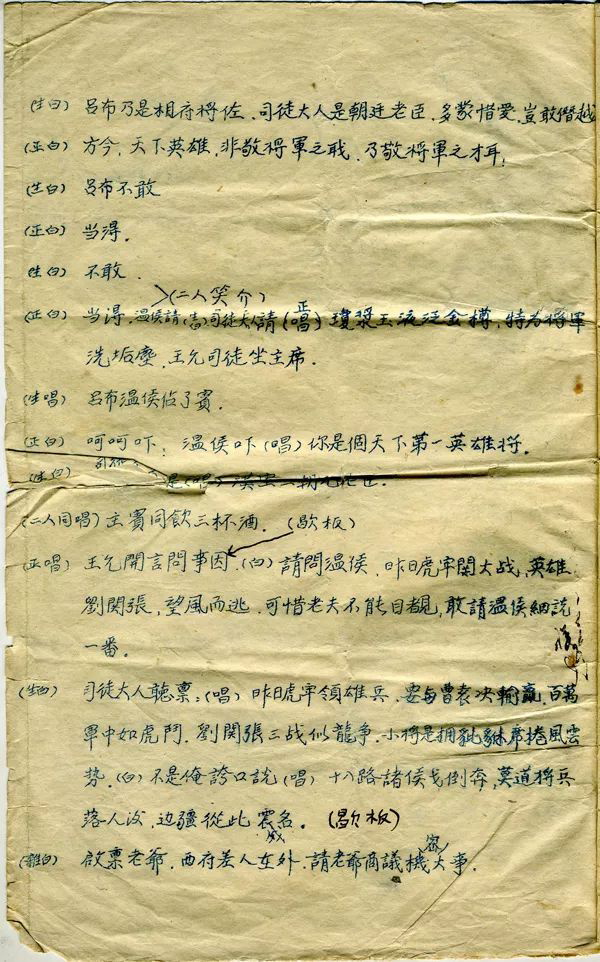 (生白) 呂布乃是相府將佐，司徒大人是朝廷老臣，多蒙惜愛，豈敢僭越
(正白) 方今，天下英雄，非敬將軍之戰，乃敬將軍之才耳；
(生白) 呂布不敢
(正白) 当得。
(生白) 不敢．
(二人笑介)
(正白) 当得．温侯請，(生白)司徒大人請 (正唱) 瓊漿玉液泛金樽，特為將軍
洗垢塵，王允司徒坐主席．
(生唱) 呂布温侯佔了賓．
(正白) 呵呵吓；温侯吓 (唱) 你是個天下第一英雄将．
(生白) 是 (唱) 漢室
(二人同唱) 主賓同飲三杯酒． (歇板)
(正唱) 王允開言問事因．(白) 請問温侯，昨日虎牢關大战，英雄
劉関張，望風而逃，可惜老夫不能目覩，敢請温侯細説
一番。
(生白) 司徒大人聽禀；(唱) 昨日虎牢領雄兵，要与曹袁决輸贏，百萬
軍中如虎鬥，劉関張三战似龍争，小將是拥貔貅席捲風雲
势．(白) 不是俺誇口説 (唱) 十八路諸侯戈倒奔，莫道将兵
落人後，边疆從此震威名． (歇板)
(雜白) 啟禀老爺，西府差人在外，請老爺商議機密大事．